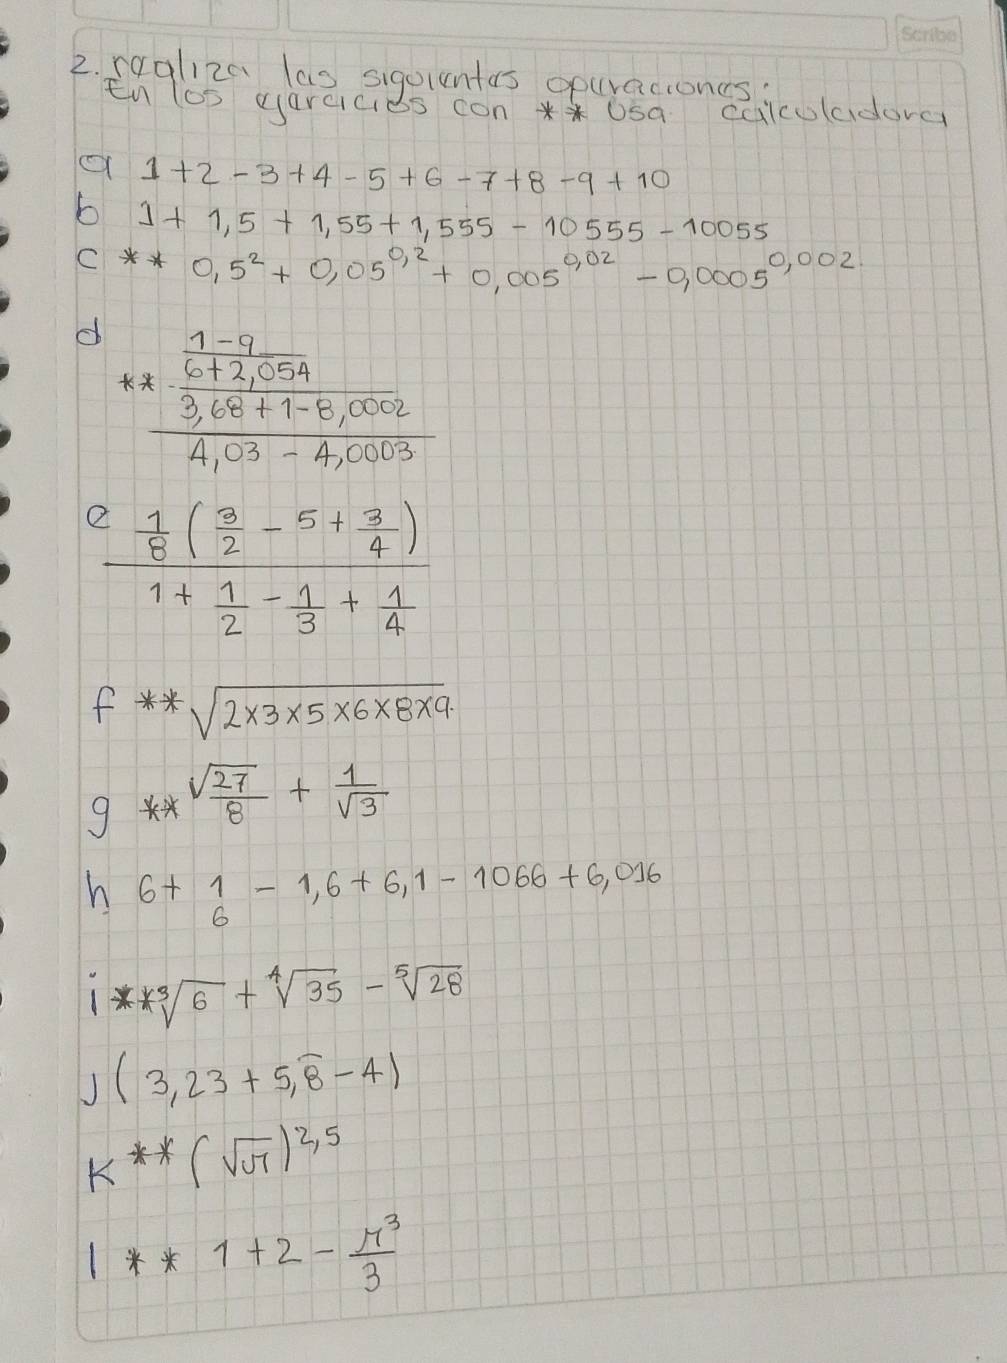 Scribe
2. realiza las siguientes operaciones:
En los ejercicios con ** usa calculadora
a 1+2-3+4-5+6-7+8-9+10
b 1+1,5+1,55+1,555-10555-10055
c ** 0,5² + 0,05^0,2 + 0,005^0,02 - 0,0005^0,002
d
1-9
6+2,054
** -
3,68+1-8,0002
4,03-4,0003
e 1/8 (3/2 - 5 + 3/4)
1 + 1/2 - 1/3 + 1/4
f ** √2×3×5×6×8×9
g ** √27/8 + 1/√3
h 6+ 1 - 1,6+6,1-1066+6,016
6
i ** ³√6 + ⁴√35 - ⁵√28
J (3,23+5,8̅-4)
K ** (√π)^2,5
l ** 1+2-π³/3